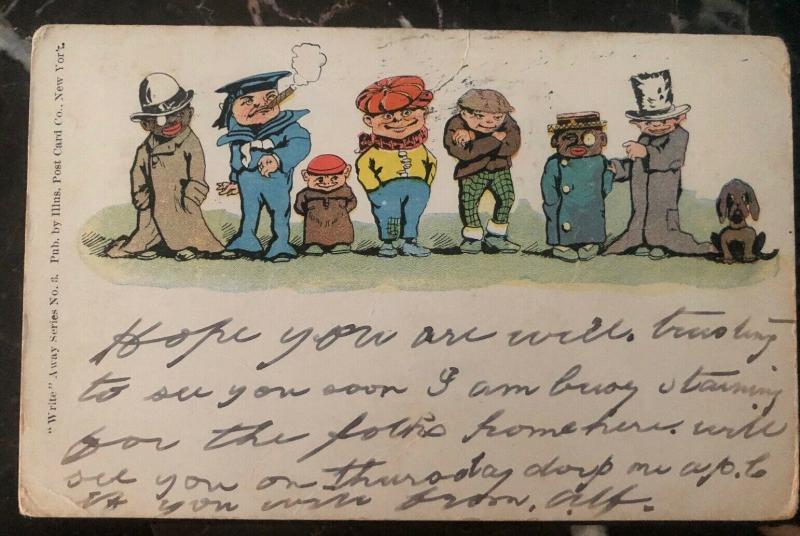 "Write" Away Series No. 3. Pub. by Illus. Post Card Co., New York.
Hope you are will. trusting
to see you soon I am busy staining
for the folks home here. will
see you on Thursday dorp me a p.c
if you will from. Alf.